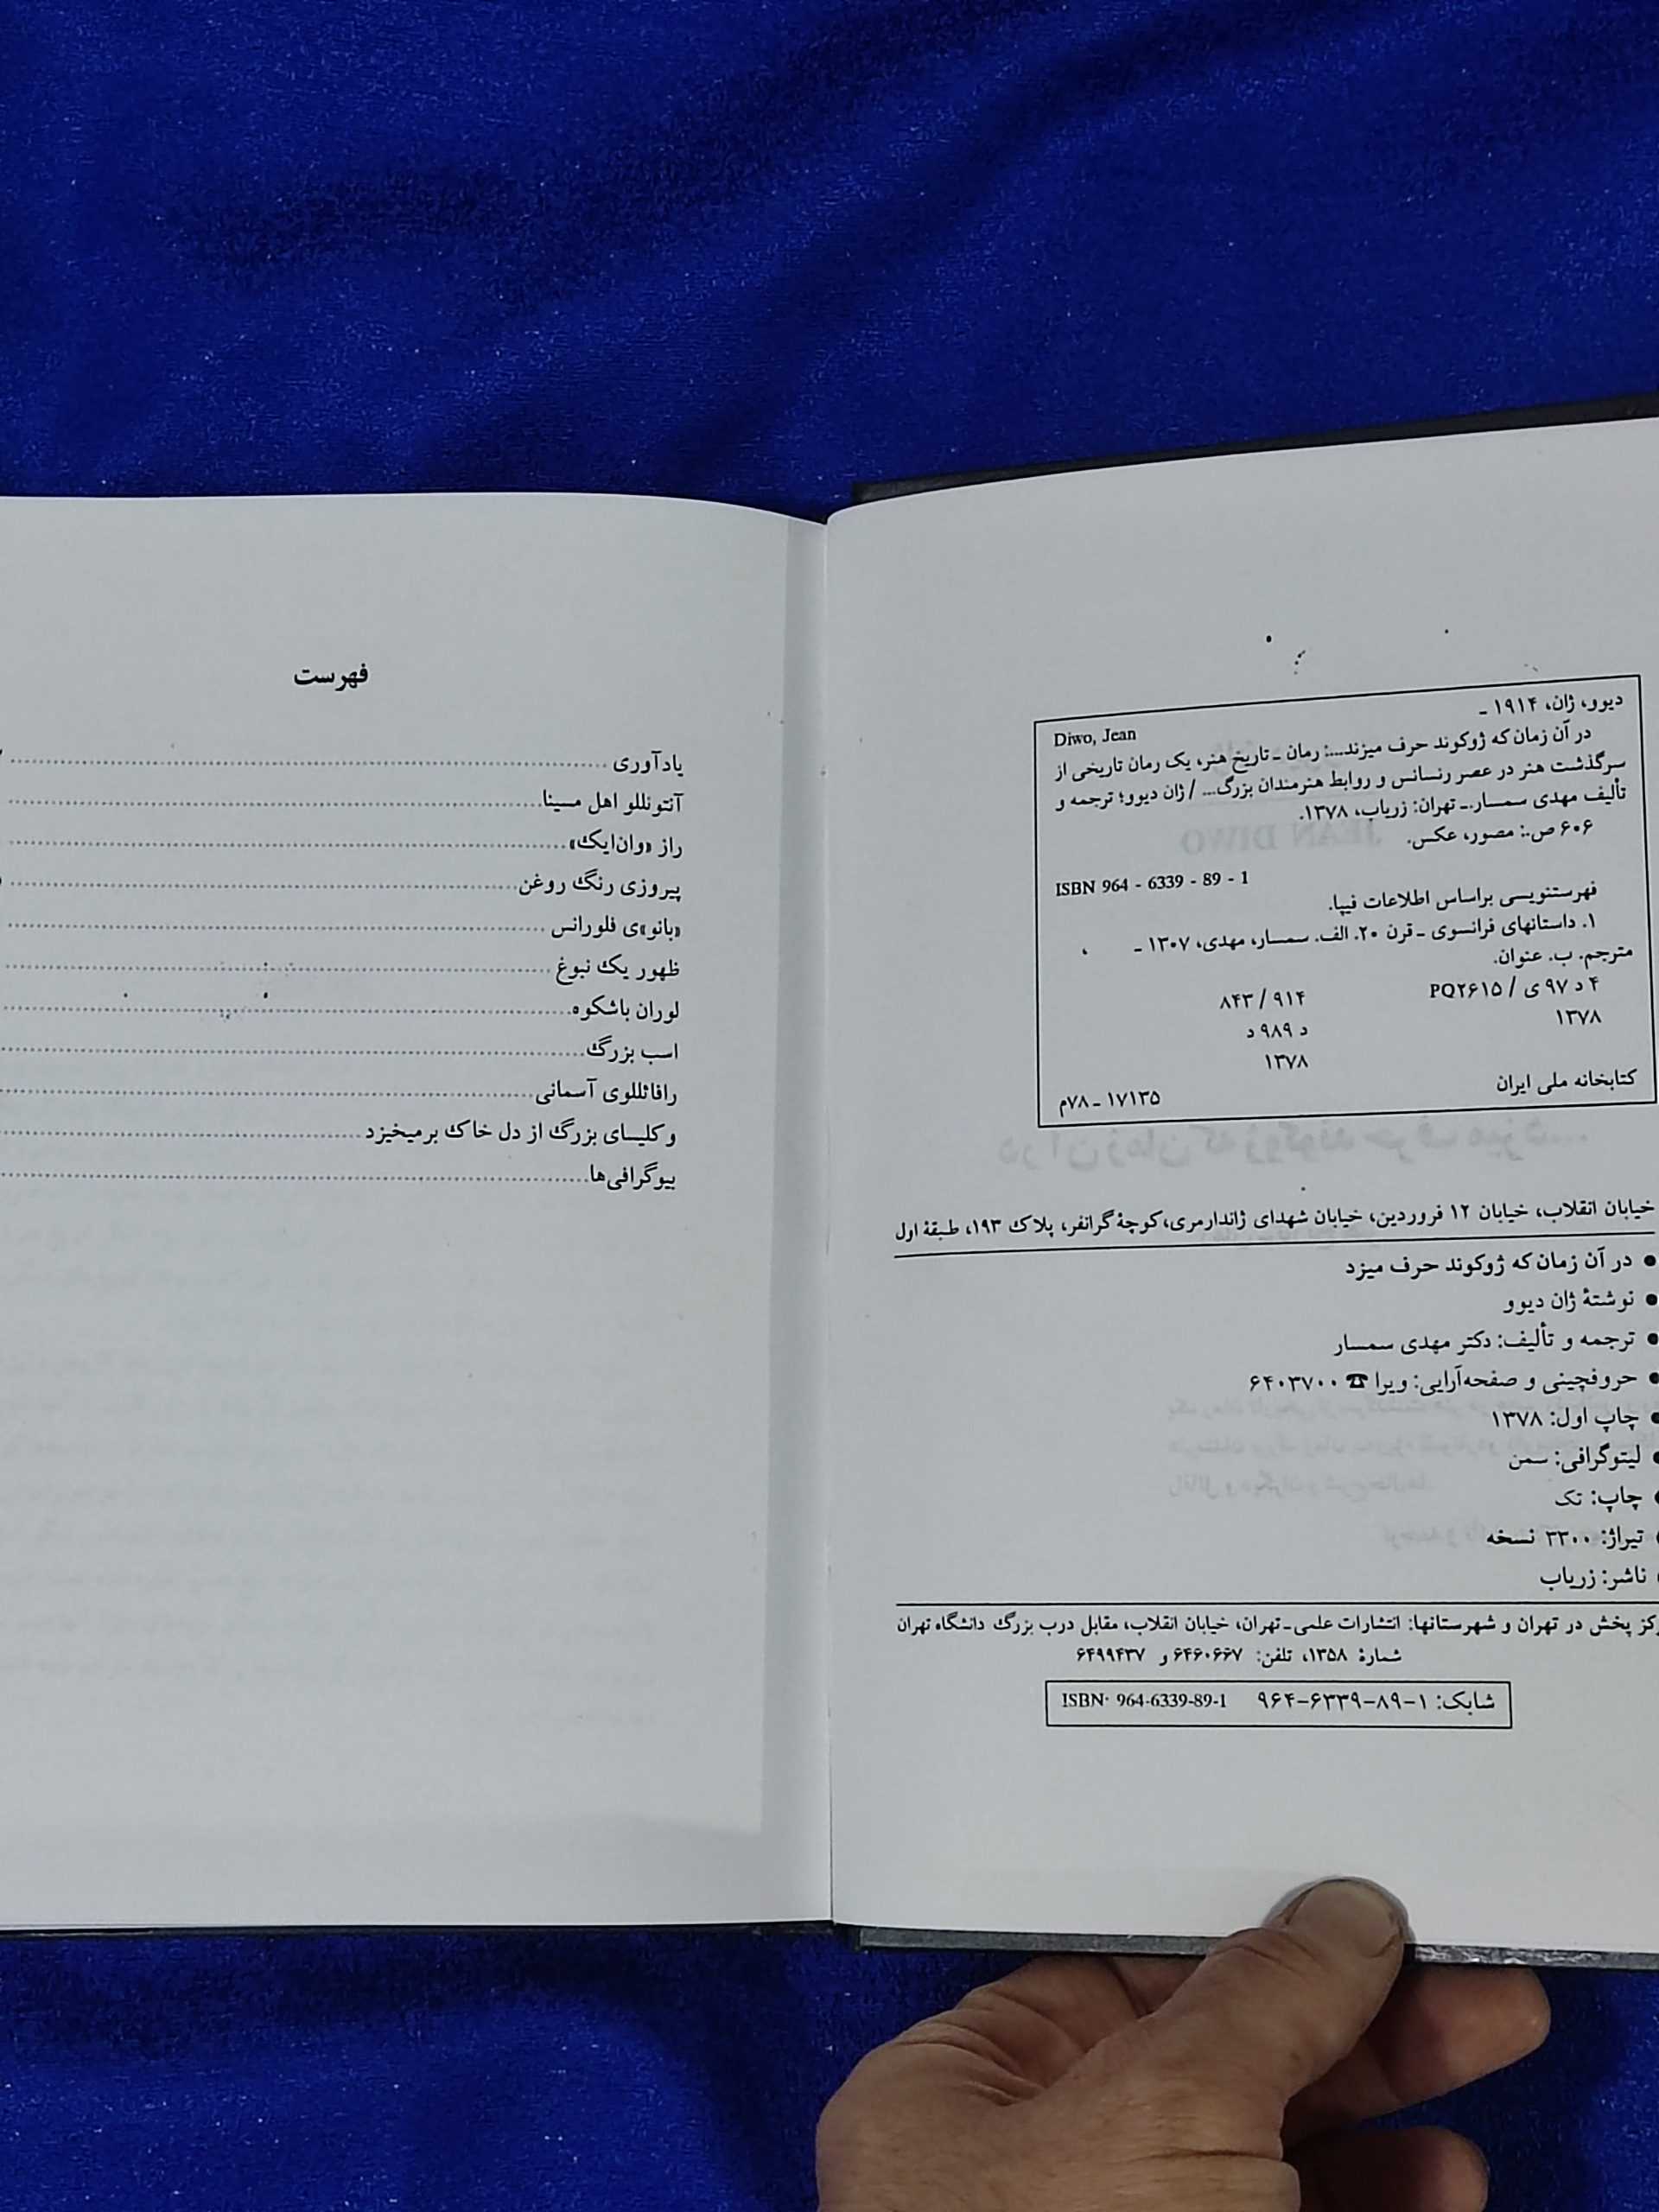 دیوو، ژان، ۱۹۱۴ ـ
Diwo, Jean
در آن زمان که ژوکوند حرف میزند...: رمان ـ تاریخ هنر، یک رمان تاریخی از
سرگذشت هنر در عصر رنسانس و روابط هنرمندان بزرگ... / ژان دیوو؛ ترجمه و
تألیف مهدی سمسار.ـ تهران: زریاب، ۱۳۷۸.
۶۰۶ ص.: مصور، عکس.
ISBN 964 - 6339 - 89 - 1
فهرستنویسی براساس اطلاعات فیپا.
۱. داستانهای فرانسوی ـ قرن ۲۰. الف. سمسار، مهدی، ۱۳۰۷ ـ ،
مترجم. ب. عنوان.
۴ د ۹۷ ی / PQ۲۶۱۵ ۸۴۳ / ۹۱۴
۱۳۷۸ د ۹۸۹ د
۱۳۷۸
کتابخانه ملی ایران ۱۷۱۳۵ ـ ۷۸م
خیابان انقلاب، خیابان ۱۲ فروردین، خیابان شهدای ژاندارمری، کوچۀ گرانفر، پلاک ۱۹۳، طبقۀ اول
● در آن زمان که ژوکوند حرف میزد
● نوشتۀ ژان دیوو
● ترجمه و تألیف: دکتر مهدی سمسار
● حروفچینی و صفحه‌آرایی: ویرا ☎ ۶۴۰۳۷۰۰
● چاپ اول: ۱۳۷۸
● لیتوگرافی: سمن
● چاپ: تک
● تیراژ: ۳۳۰۰ نسخه
● ناشر: زریاب
پخش در تهران و شهرستانها: انتشارات علمی ـ تهران، خیابان انقلاب، مقابل درب بزرگ دانشگاه تهران
شمارۀ ۱۳۵۸، تلفن: ۶۴۶۰۶۶۷ و ۶۴۹۹۴۳۷
شابک: ۱-۸۹-۶۳۳۹-۹۶۴ ISBN: 964-6339-89-1
فهرست
یادآوری
آنتونللو اهل مسینا
راز «وان‌ایک»
پیروزی رنگ روغن
«بانو»ی فلورانس
ظهور یک نبوغ
لوران باشکوه
اسب بزرگ
رافائللوی آسمانی
و کلیسای بزرگ از دل خاک برمیخیزد
بیوگرافی‌ها